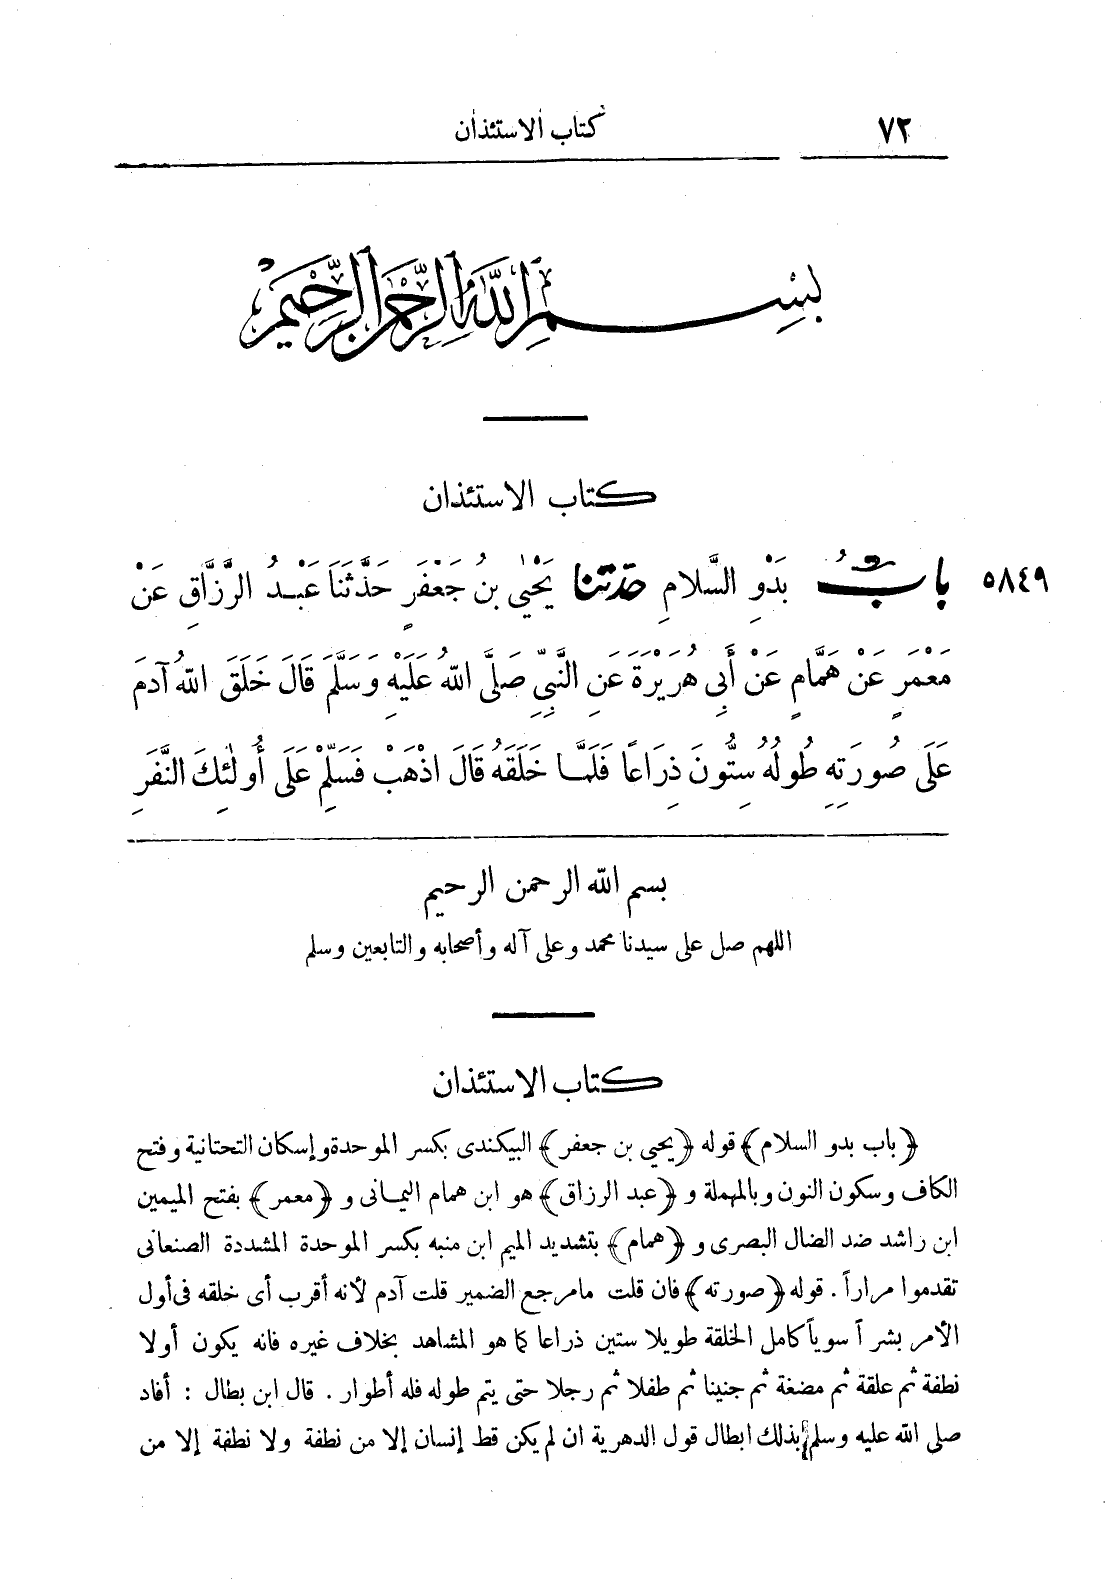 ٧٢ كتاب الاستئذان
بِسْمِ اللَّهِ الرَّحْمَنِ الرَّحِيمِ
كتاب الاستئذان
٥٨٤٩ بابُ بَدْوِ السَّلامِ حَدَّثَنَا يَحْيَى بْنُ جَعْفَرٍ حَدَّثَنَا عَبْدُ الرَّزَّاقِ عَنْ
مَعْمَرٍ عَنْ هَمَّامٍ عَنْ أَبِي هُرَيْرَةَ عَنِ النَّبِيِّ صَلَّى اللهُ عَلَيْهِ وَسَلَّمَ قَالَ خَلَقَ اللهُ آدَمَ
عَلَى صُورَتِهِ طُولُهُ سِتُّونَ ذِرَاعًا فَلَمَّا خَلَقَهُ قَالَ اذْهَبْ فَسَلِّمْ عَلَى أُولَٰئِكَ النَّفَرِ
بسم الله الرحمن الرحيم
اللهم صل على سيدنا محمد وعلى آله وأصحابه والتابعين وسلم
كتاب الاستئذان
﴿باب بدو السلام﴾ قوله ﴿يحيى بن جعفر﴾ البيكندى بكسر الموحدة وإسكان التحتانية وفتح
الكاف وسكون النون وبالمهملة و ﴿عبد الرزاق﴾ هو ابن همام اليمانى و ﴿معمر﴾ بفتح الميمين
ابن راشد ضد الضال البصرى و ﴿همام﴾ بتشديد الميم ابن منبه بكسر الموحدة المشددة الصنعانى
تقدموا مراراً . قوله ﴿صورته﴾ فان قلت مامرجع الضمير قلت آدم لأنه أقرب أى خلقه فى أول
الأمر بشراً سوياً كامل الخلقة طويلا ستين ذراعا كما هو المشاهد بخلاف غيره فانه يكون أولا
نطفة ثم علقة ثم مضغة ثم جنينا ثم طفلا ثم رجلا حتى يتم طوله فله أطوار . قال ابن بطال : أفاد
صلى الله عليه وسلم بذلك ابطال قول الدهرية ان لم يكن قط إنسان إلا من نطفة ولا نطفة إلا من